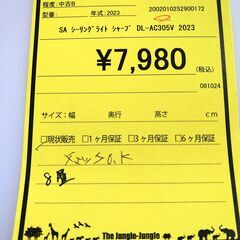 程度: 中古B
型番: 年式: 2023 2002010252900172
SA シーリングライト シャープ DL-AC305V 2023
¥7,980
(税込)
081024
サイズ: 幅 奥行 高さ cm
□現状販売 □1ヶ月保証 □3ヶ月保証 □6ヶ月保証
8畳
The Jungle-Jungle